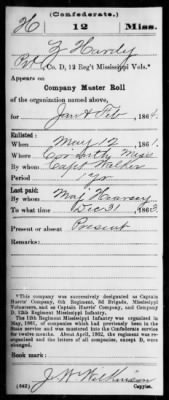 (Confederate.)
H 12 Miss.
Z Hardy
Pvt, Co. D, 12 Reg't Mississippi Vols.*
Appears on
Company Muster Roll
of the organization named above,
for Jan & Feb, 1864.
Enlisted:
When May 12, 1861.
Where Corinth, Miss
By whom Capt
Period 1 yr
Last paid:
By whom Maj
To what time Dec 31, 1863.
Present or absent Present
Remarks:
*This company was successively designated as Captain
Harris' Company, 6th Regiment, 3d Brigade, Mississippi
Volunteers, and as Captain Harris' Company, and Company
D, 12th Regiment Mississippi Infantry.
The 12th Regiment Mississippi Infantry was organized in
May, 1861, of companies which had previously been in the
State service and was mustered into the Confederate service
for twelve months. About April, 1862, the regiment was re-
organized and the letters of all companies, except D, were
changed.
Book mark:
(642) J. W. Wilkinson
Copyist.